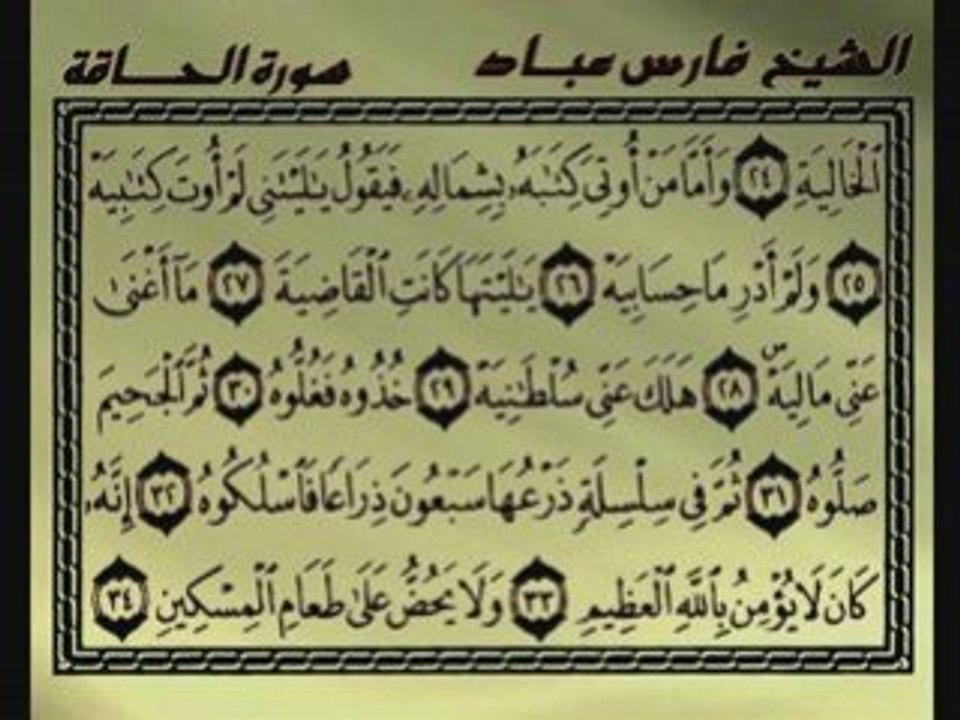 الشيخ فارس عباد
سورة الحاقة
ٱلْخَالِيَةِ ٢٤ وَأَمَّا مَنْ أُوتِىَ كِتَٰبَهُۥ بِشِمَالِهِۦ فَيَقُولُ يَٰلَيْتَنِى لَمْ أُوتَ كِتَٰبِيَهْ
٢٥ وَلَمْ أَدْرِ مَا حِسَابِيَهْ ٢٦ يَٰلَيْتَهَا كَانَتِ ٱلْقَاضِيَةَ ٢٧ مَآ أَغْنَىٰ
عَنِّى مَالِيَهْ ۜ ٢٨ هَلَكَ عَنِّى سُلْطَٰنِيَهْ ٢٩ خُذُوهُ فَغُلُّوهُ ٣٠ ثُمَّ ٱلْجَحِيمَ
صَلُّوهُ ٣١ ثُمَّ فِى سِلْسِلَةٍ ذَرْعُهَا سَبْعُونَ ذِرَاعًا فَٱسْلُكُوهُ ٣٢ إِنَّهُۥ
كَانَ لَا يُؤْمِنُ بِٱللَّهِ ٱلْعَظِيمِ ٣٣ وَلَا يَحُضُّ عَلَىٰ طَعَامِ ٱلْمِسْكِينِ ٣٤